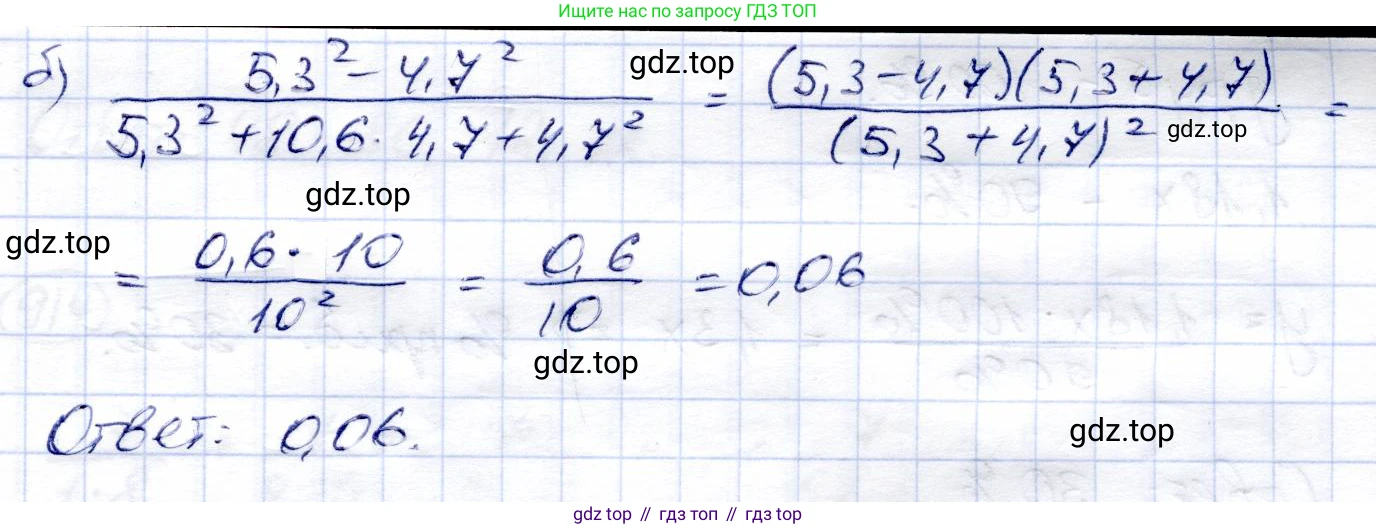 Ищите нас по запросу ГДЗ ТОП
б) (5,3² − 4,7²) / (5,3² + 10,6 · 4,7 + 4,7²) = ((5,3 − 4,7)(5,3 + 4,7)) / (5,3 + 4,7)² =
gdz.top
gdz.top
gdz.top
gdz.top
= (0,6 · 10) / 10² = 0,6 / 10 = 0,06
gdz.top
Ответ: 0,06.
gdz.top
gdz top // гдз топ // gdz top